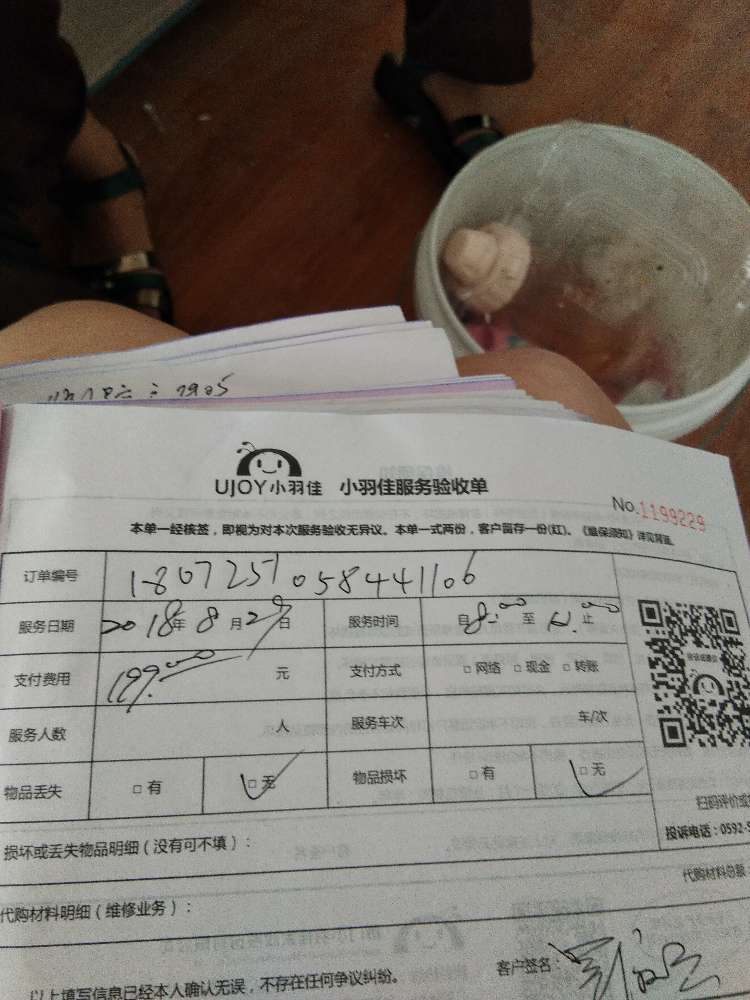 UJOY小羽佳 小羽佳服务验收单
No.1199229
本单一经核签，即视为对本次服务验收无异议。本单一式两份，客户留存一份(红)。《维保须知》详见背面。
订单编号 1807251058441106
服务日期 2018年8月29日 服务时间 自8:00至12:00止
支付费用 199.00元 支付方式 □网络 □现金 □转账
服务人数 人 服务车次 车/次
物品丢失 □有 □无 物品损坏 □有 □无
扫码评价或
投诉电话：0592-5
损坏或丢失物品明细（没有可不填）：
代购材料总额：
代购材料明细（维修业务）：
客户签名：
以上填写信息已经本人确认无误，不存在任何争议纠纷。